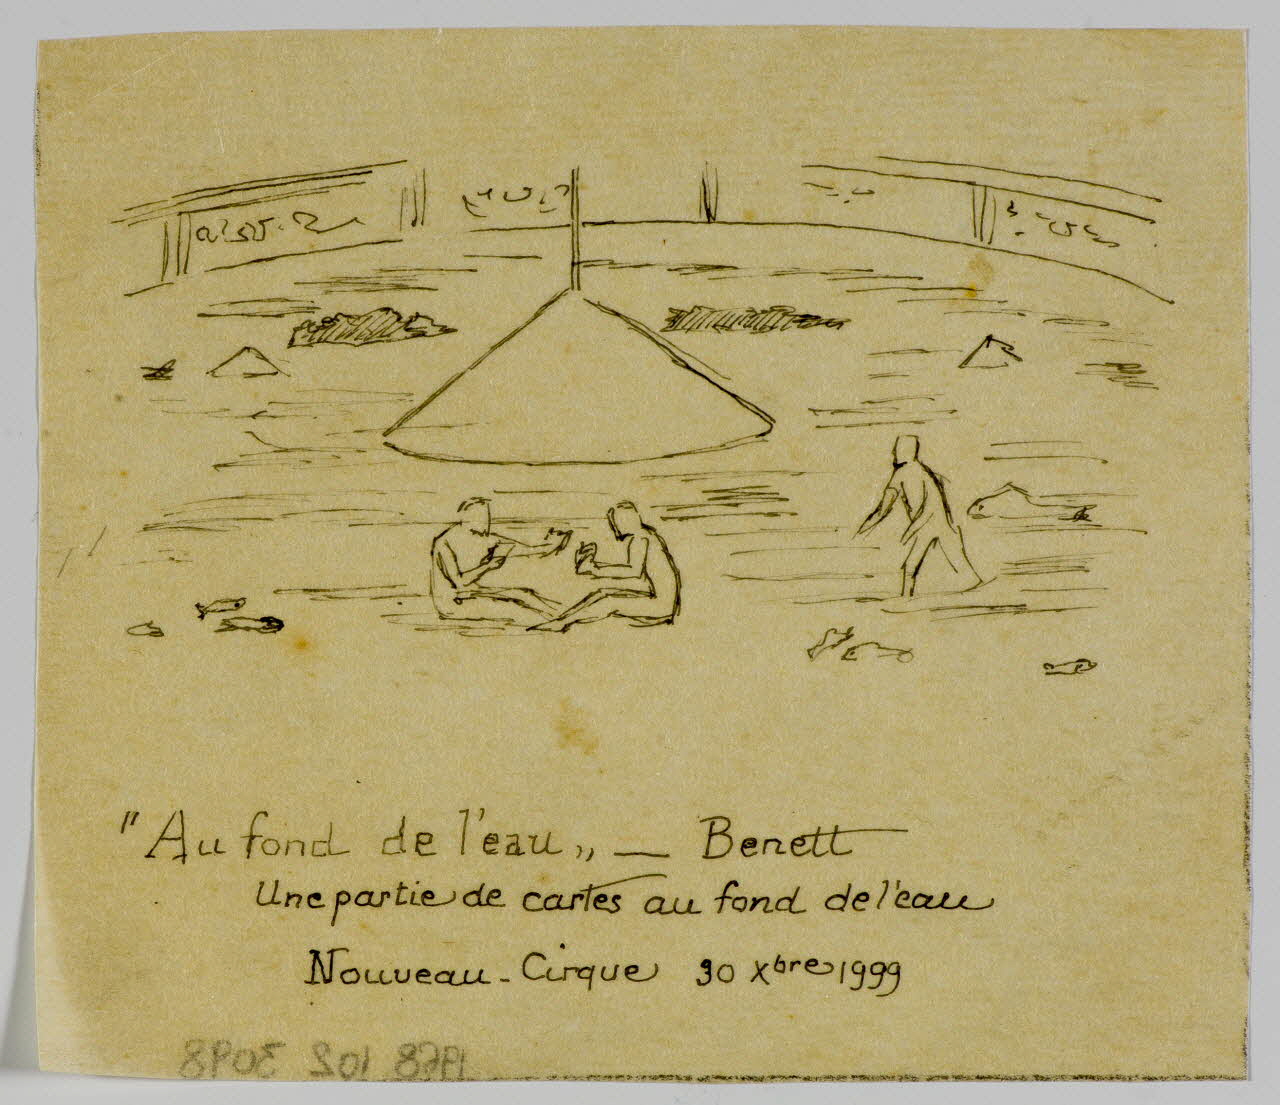 "Au fond de l'eau„ — Benett
Une partie de cartes au fond de l'eau
Nouveau-Cirque 30 Xbre 1999
1968 102 3098